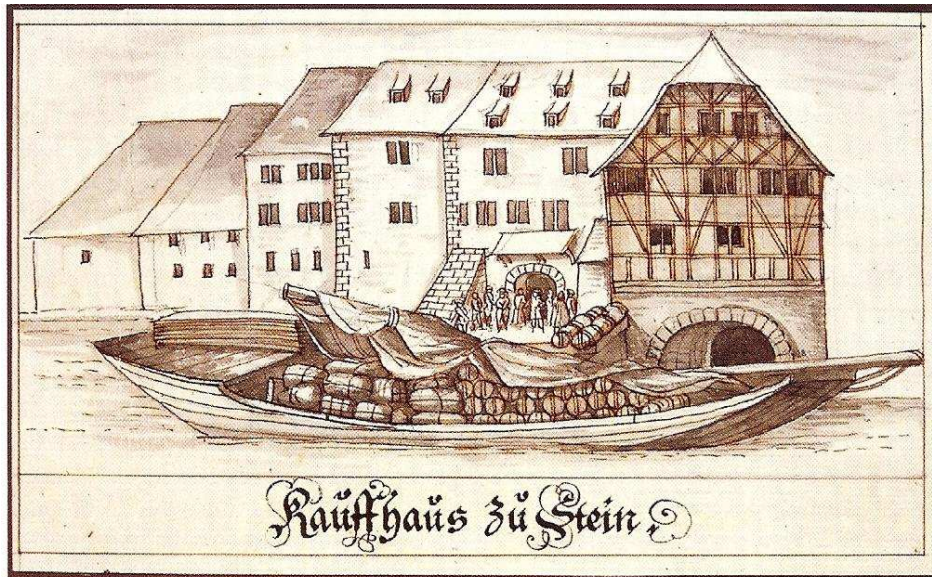 Kauffhaus zu Stein.